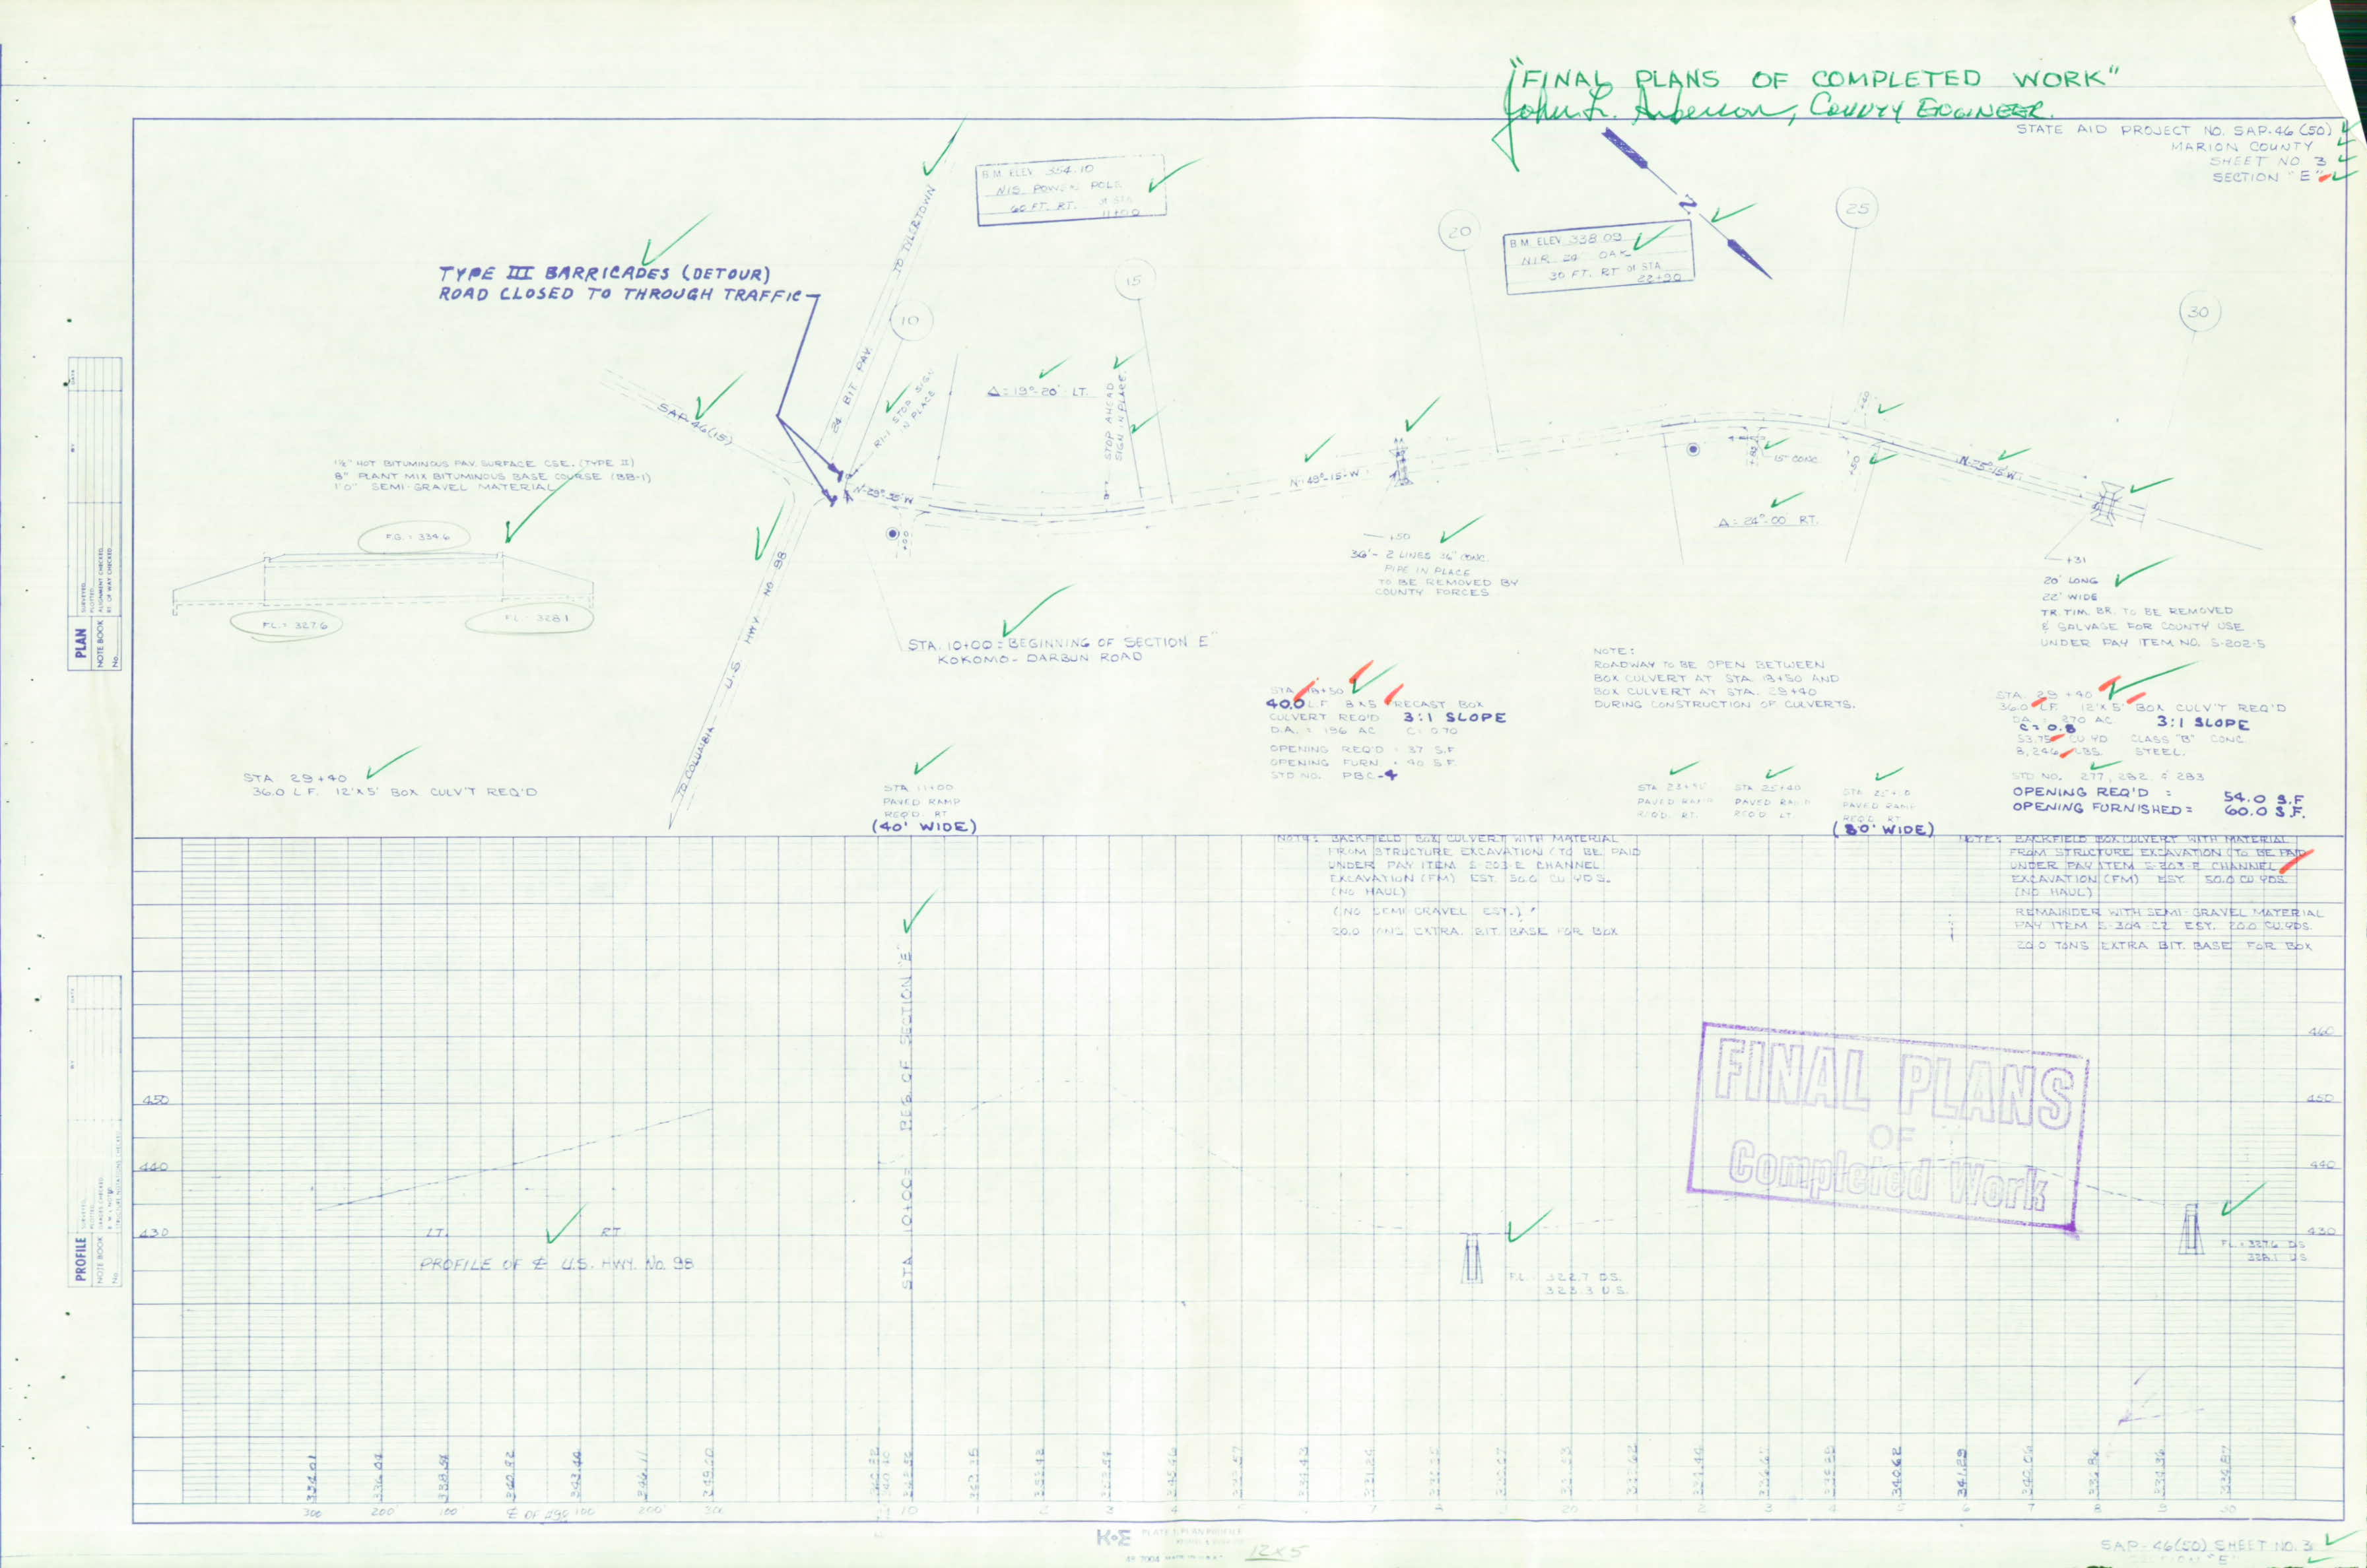 "FINAL PLANS OF COMPLETED WORK"
John L. Anderson, COUNTY ENGINEER
STATE AID PROJECT NO. SAP-46 (50)
MARION COUNTY
SHEET NO 3
SECTION "E"
B.M. ELEV. 354.10
N.I.S. POWER POLE
60 FT. RT.
B.M. ELEV. 338.09
N.I.R. 24" OAK
30 FT. RT OF STA
22+90
N
TYPE III BARRICADES (DETOUR)
ROAD CLOSED TO THROUGH TRAFFIC
TO TYLERTOWN
24' BIT PAV.
10
15
20
25
30
R1-1 STOP SIGN
IN PLACE
Δ=19°-20' LT.
STOP AHEAD
SIGN IN PLACE
SAP-46(15)
N-48°-15'-W
15" CONC.
Δ=24°-00 RT.
N-25°-15'-W
1½" HOT BITUMINOUS PAV. SURFACE CSE. (TYPE II)
8" PLANT MIX BITUMINOUS BASE COURSE (BB-1)
1'0" SEMI-GRAVEL MATERIAL
F.G. = 334.6
FL. = 327.6
FL. = 328.1
U.S. HWY NO 98
TO COLUMBIA
STA. 10+00 = BEGINNING OF SECTION E"
KOKOMO - DARBUN ROAD
+50
36' - 2 LINES 36" CONC.
PIPE IN PLACE
TO BE REMOVED BY
COUNTY FORCES
+31
20' LONG
22' WIDE
TR. TIM. BR. TO BE REMOVED
& SALVAGE FOR COUNTY USE
UNDER PAY ITEM NO. S-202-5
NOTE:
ROADWAY TO BE OPEN BETWEEN
BOX CULVERT AT STA. 18+50 AND
BOX CULVERT AT STA. 29+40
DURING CONSTRUCTION OF CULVERTS.
STA. 18+50
40.0 L.F. 8X5 PRECAST BOX
CULVERT REQ'D 3:1 SLOPE
D.A. = 196 AC C=0.70
OPENING REQ'D = 37 S.F.
OPENING FURN. = 40 S.F.
STD NO. PBC-4
STA. 29+40
36.0 L.F. 12'X5' BOX CULV'T REQ'D
D.A. = 270 AC. 3:1 SLOPE
C=0.8
53.75 CU YD CLASS "B" CONC
8,246 LBS. STEEL.
STD NO. 277, 282 & 283
OPENING REQ'D = 54.0 S.F.
OPENING FURNISHED = 60.0 S.F.
STA 29+40
36.0 L.F. 12'X5' BOX CULV'T REQ'D
STA 11+00
PAVED RAMP
REQ'D. RT
(40' WIDE)
PAVED RAMP
REQ'D. RT.
STA. 25+40
PAVED RAMP
REQ'D LT
PAVED RAMP
REQ'D RT
(80' WIDE)
NOTE: BACKFIELD BOX CULVERT WITH MATERIAL
FROM STRUCTURE EXCAVATION (TO BE PAID
UNDER PAY ITEM S-203-E CHANNEL
EXCAVATION (FM) EST. 50.0 CU YDS.
(NO HAUL)
(NO SEMI GRAVEL EST.)
20.0 TONS EXTRA BIT. BASE FOR BOX
NOTE: BACKFIELD BOX CULVERT WITH MATERIAL
FROM STRUCTURE EXCAVATION (TO BE PAID
UNDER PAY ITEM S-203-E CHANNEL
EXCAVATION (FM) EST. 50.0 CU YDS.
(NO HAUL)
REMAINDER WITH SEMI-GRAVEL MATERIAL
PAY ITEM S-304-C2 EST. 20.0 CU.YDS.
20.0 TONS EXTRA BIT. BASE FOR BOX
STA 10+00 = BEG. OF SECTION "E"
FINAL PLANS
OF
Completed Work
450
440
430
460
450
440
430
LT.
RT
PROFILE OF ℄ U.S. HWY. No. 98
FL. = 322.7 D.S.
323.3 U.S.
FL. = 327.6 DS
328.1 U.S
334.01
336.04
338.51
340.92
343.44
349.00
340.62
341.29
300 200 100 ℄ OF #98 100 200 300
10
20
PLAN
NOTE BOOK
No.
PROFILE
NOTE BOOK
No.
K+E
12X5
SAP-46(50) SHEET NO. 3